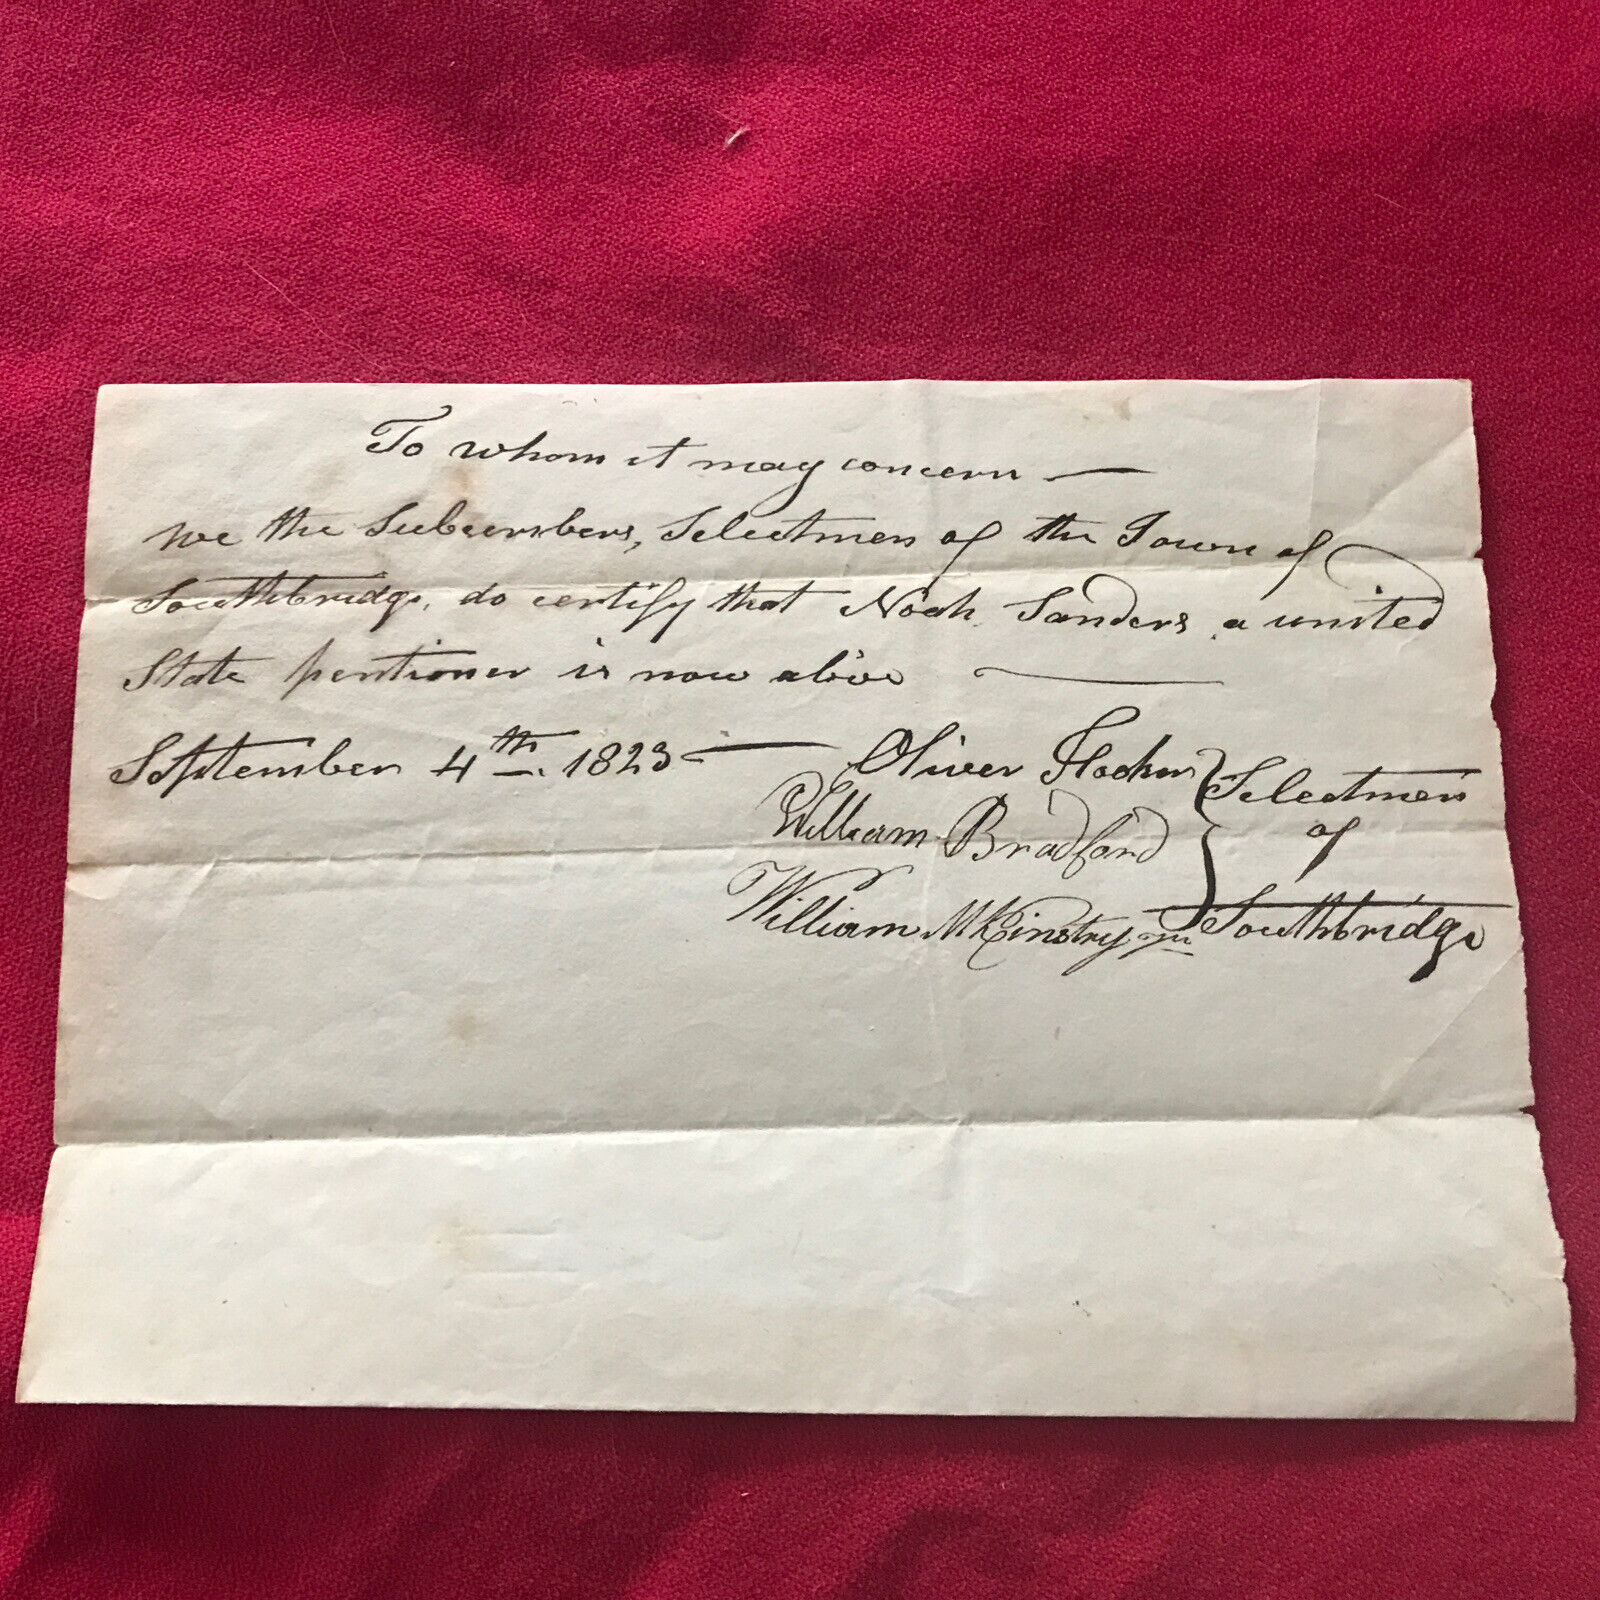 To whom it may concern —
we the Subscribers, Selectmen of the Town of
Southbridge, do certify that Noah Sanders a united
State pentioner is now alive —
September 4th. 1823 — Oliver Hooker } Selectmen
William Bradford } of
William McKinstry jr } Southbridge